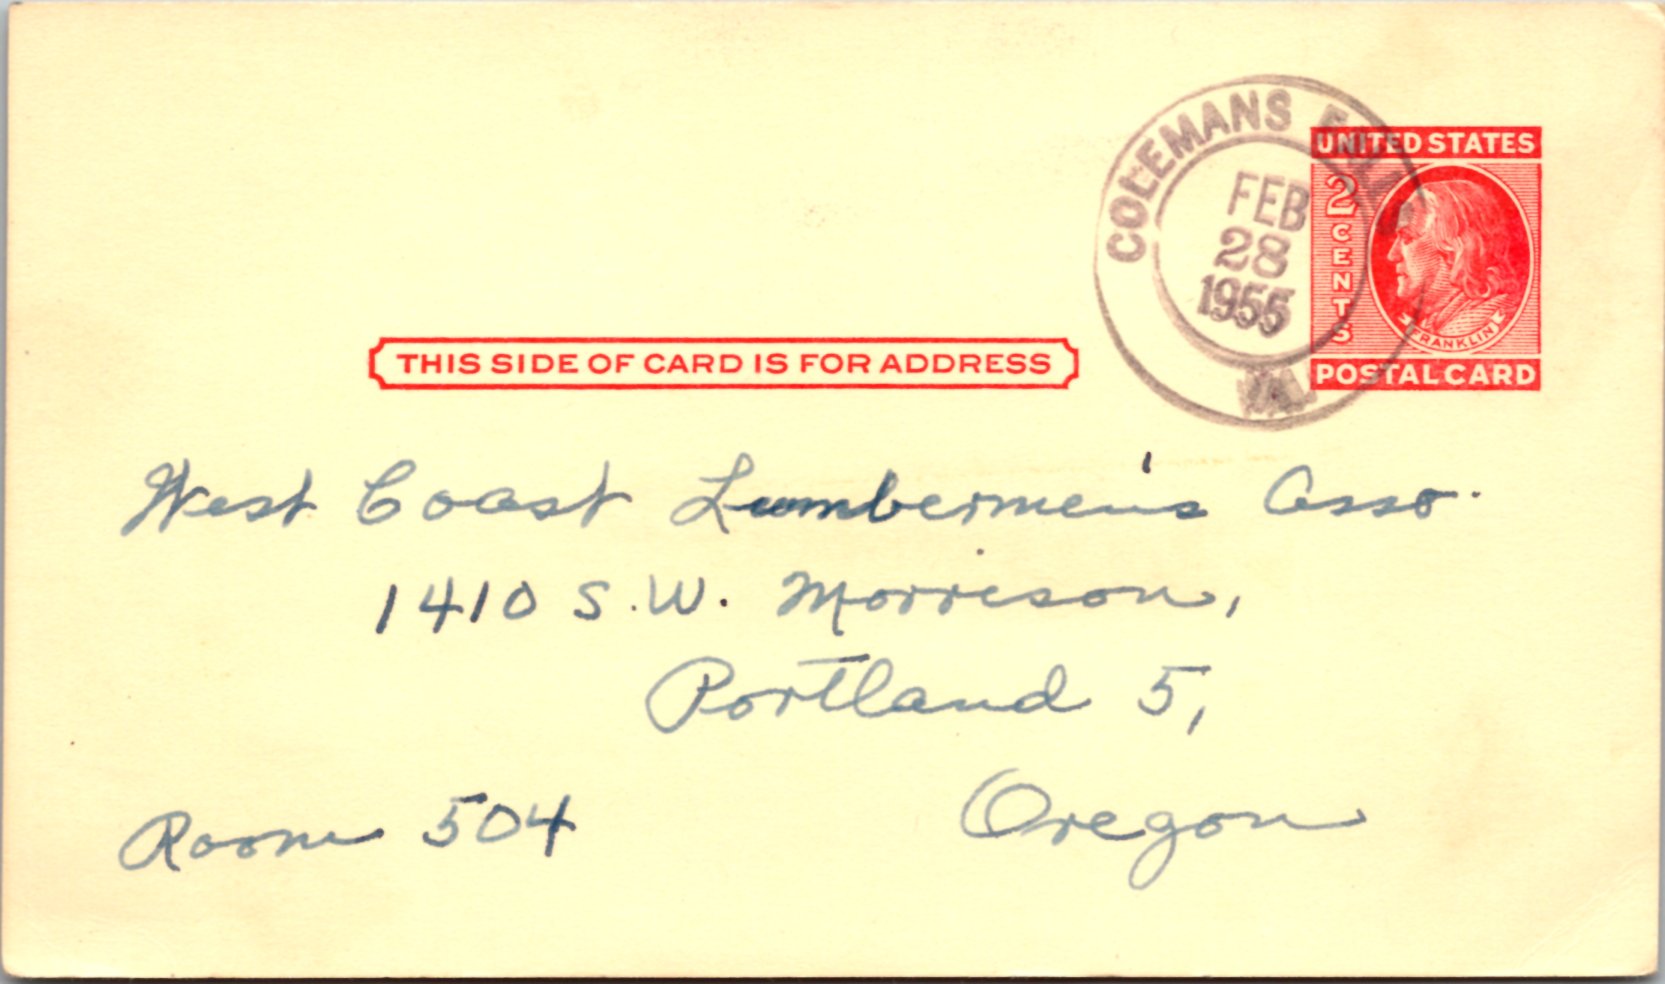 COLEMANS FALLS
FEB
28
1955
VA.
UNITED STATES
2 CENTS
FRANKLIN
POSTAL CARD
THIS SIDE OF CARD IS FOR ADDRESS
West Coast Lumbermen's Asso.
1410 S.W. Morrison,
Portland 5,
Room 504 Oregon